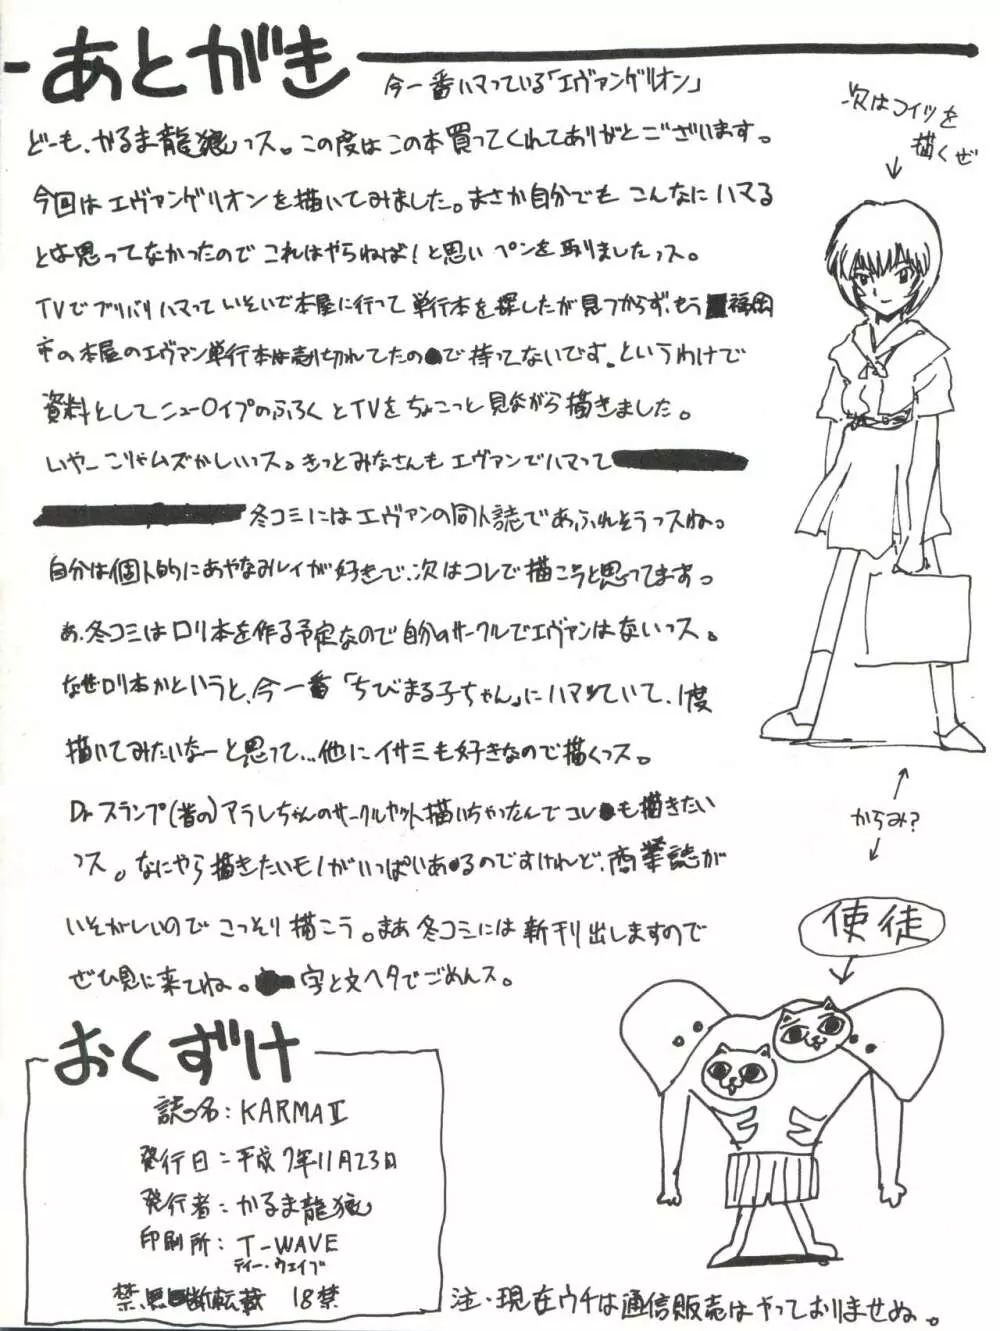 あとがき
今一番ハマっている「エヴァンゲリオン」
どーも、かるま龍狼っス。この度はこの本買ってくれてありがとございます。
今回はエヴァンゲリオンを描いてみました。まさか自分でもこんなにハマる
とは思ってなかったのでこれはやらねば！と思いペンを取りましたっス。
TVでブリバリハマっていそいで本屋に行って単行本を探したが見つからず、もう福岡
市の本屋のエヴァン単行本は売り切れてたので持ってないです。というわけで
資料としてニュー〇イプのふろくとTVをちょこっと見ながら描きました。
いやーこりゃムズかしいっス。きっとみなさんもエヴァンでハマって
冬コミにはエヴァンの同人誌であふれそうっスね。
自分は個人的にあやなみレイが好きで、次はコレで描こうと思ってますっ
あ、冬コミはロリ本を作る予定なので自分のサークルでエヴァンはないっス。
なぜロリ本かというと、今一番「ちびまる子ちゃん」にハマっていて、1度
描いてみたいなーと思って…他にイサミも好きなので描くっス。
Dr.スランプ(昔の)アラレちゃんのサークルカット描いちゃったんでコレも描きたい
っス。なにやら描きたいモノがいっぱいあるのですけれど、商業誌が
いそがしいのでこっそり描こう。まあ冬コミには新刊出しますので
ぜひ見に来てね。字と文ヘタでごめんス。
次はコイツを
描くぜ
からみ？
使徒
おくずけ
誌名：KARMAⅡ
発行日＝平成7年11月23日
発行者：かるま龍狼
印刷所：T-WAVE
ティー・ウェイブ
禁、無断転載 18禁
注・現在ウチは通信販売はやっておりませぬ。